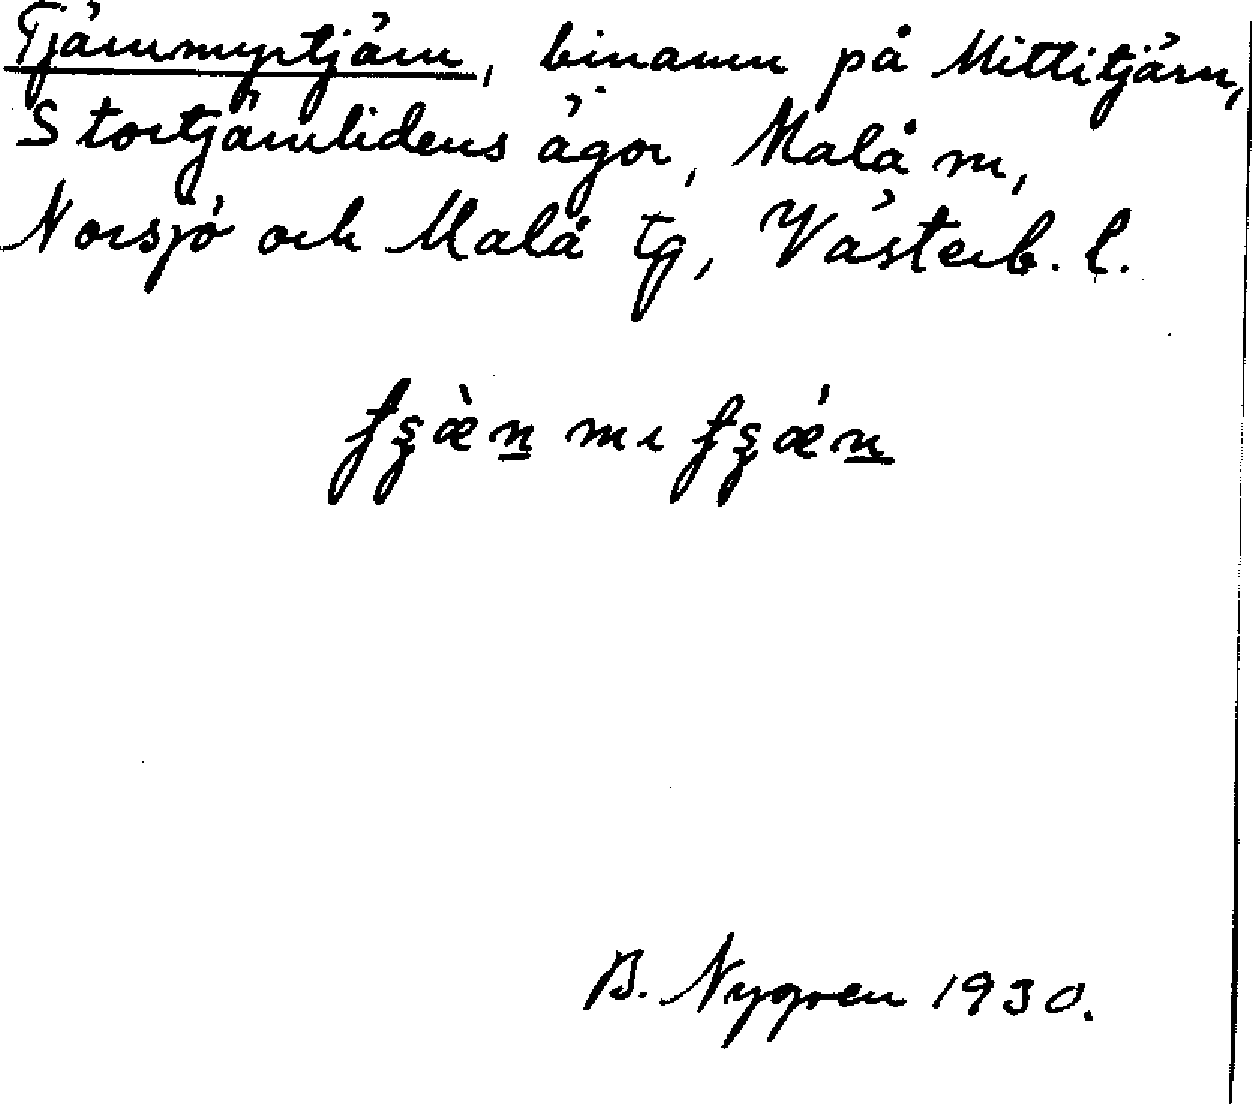 Tjärnmyrtjärn, binamn på Mittitjärn,
Stortjärnlidens ägor, Malå sn,
Norsjö och Malå tg, Västerb. l.
B. Nygren 1930.